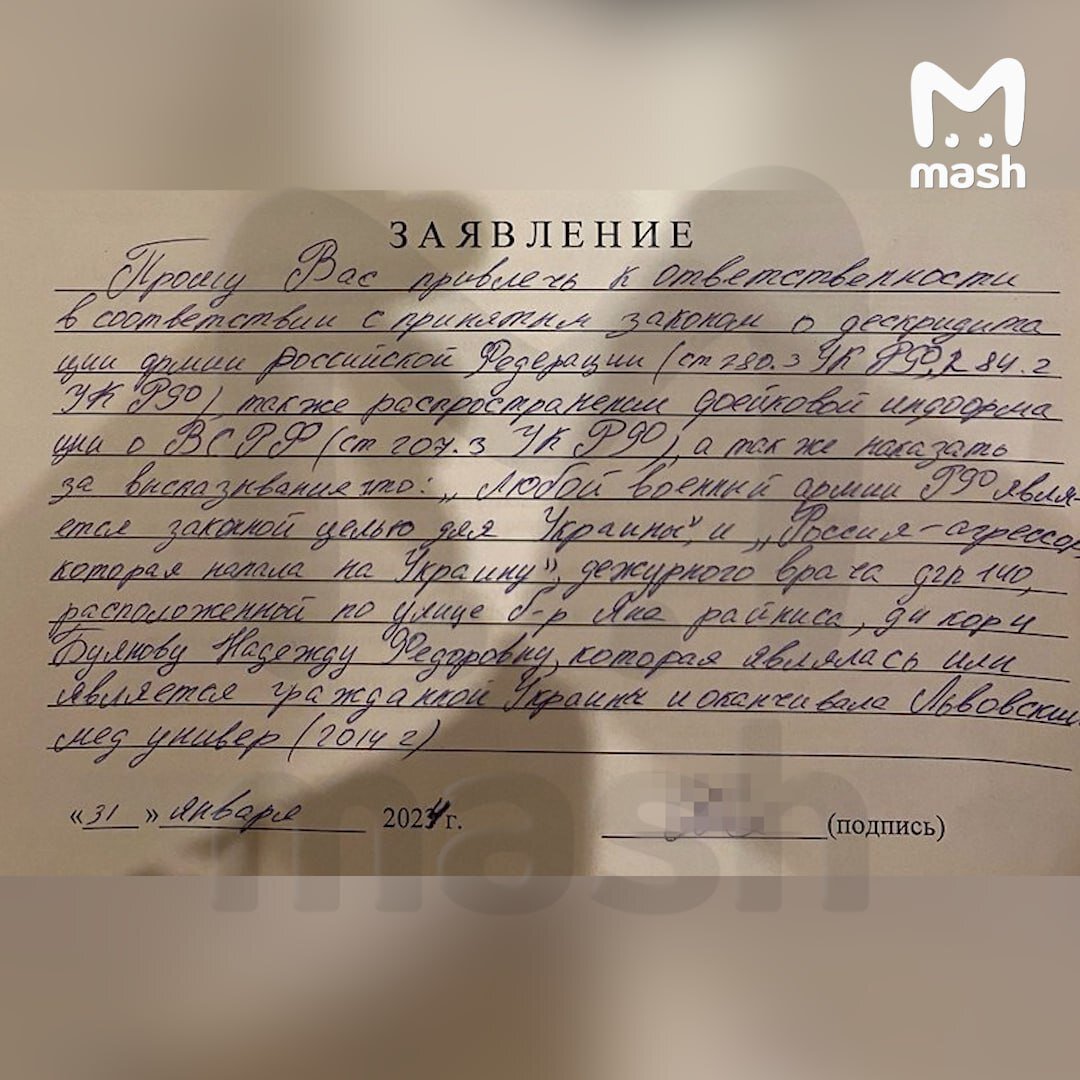 mash
ЗАЯВЛЕНИЕ
Прошу Вас привлечь к ответственности
в соответствии с принятым законом о дескридита
ции армии Российской Федерации (ст 280.3 УК РФ, 284.2
УК РФ), также распространении фейковой информа
ции о ВСРФ (ст 207.3 УК РФ), а так же наказать
за высказывание что: „Любой военный армии РФ явля-
ется законной целью для Украины", и „Россия-агрессор
которая напала на Украину", дежурного врача дгп 140,
расположенной по улице б-р Яна райниса, д4 кор 4
Буянову Надежду Федоровну, которая являлась или
является гражданкой Украины и оканчивала Львовский
мед универ (2014 г)
«31» января 2024 г.
(подпись)
mash